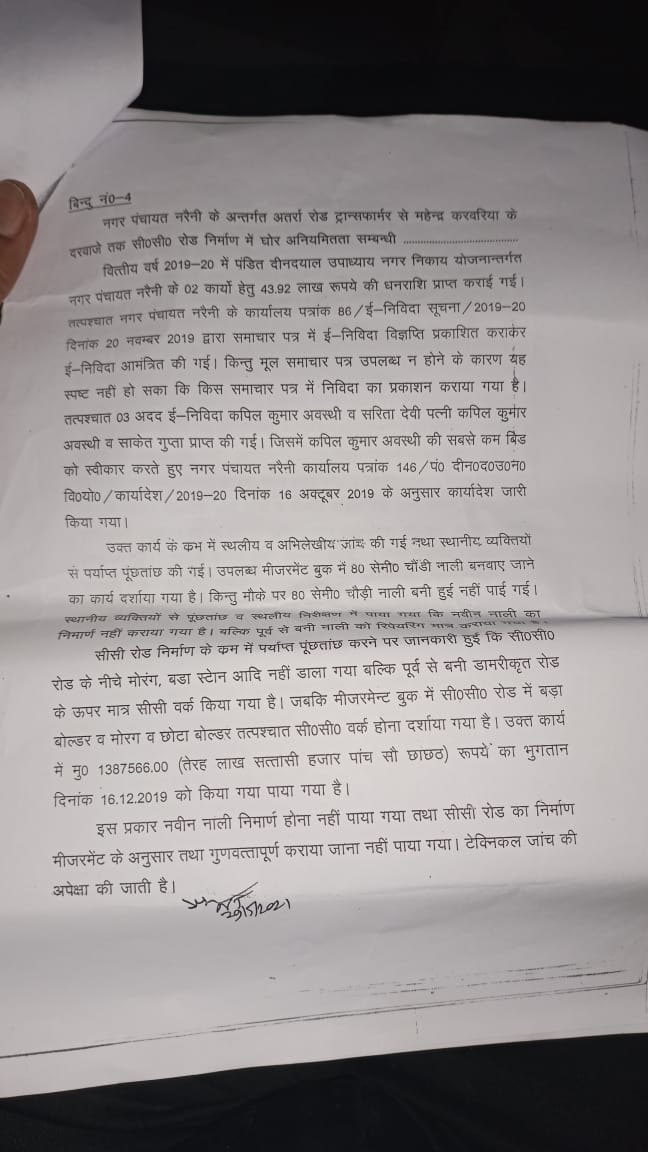 बिन्दु नं0–4
नगर पंचायत नरैनी के अन्तर्गत अतर्रा रोड ट्रान्सफार्मर से महेन्द्र करवरिया के
दरवाजे तक सी0सी0 रोड निर्माण में घोर अनियमितता सम्बन्धी ....................................
वित्तीय वर्ष 2019–20 में पंडित दीनदयाल उपाध्याय नगर निकाय योजनान्तर्गत
नगर पंचायत नरैनी के 02 कार्यो हेतु 43.92 लाख रूपये की धनराशि प्राप्त कराई गई।
तत्पश्चात नगर पंचायत नरैनी के कार्यालय पत्रांक 86/ई–निविदा सूचना/2019–20
दिनांक 20 नवम्बर 2019 द्वारा समाचार पत्र में ई–निविदा विज्ञप्ति प्रकाशित कराकर
ई–निविदा आमंत्रित की गई। किन्तु मूल समाचार पत्र उपलब्ध न होने के कारण यह
स्पष्ट नहीं हो सका कि किस समाचार पत्र में निविदा का प्रकाशन कराया गया है।
तत्पश्चात 03 अदद ई–निविदा कपिल कुमार अवस्थी व सरिता देवी पत्नी कपिल कुमार
अवस्थी व साकेत गुप्ता प्राप्त की गई। जिसमें कपिल कुमार अवस्थी की सबसे कम बिड
को स्वीकार करते हुए नगर पंचायत नरैनी कार्यालय पत्रांक 146/पं0 दीन0द0उ0न0
वि0यो0/कार्यादेश/2019–20 दिनांक 16 अक्टूबर 2019 के अनुसार कार्यादेश जारी
किया गया।
उक्त कार्य के कम में स्थलीय व अभिलेखीय जांच की गई तथा स्थानीय व्यक्तियों
से पर्याप्त पूंछतांछ की गई। उपलब्ध मीजरमेंट बुक में 80 सेमी0 चौंडी नाली बनवाए जाने
का कार्य दर्शाया गया है। किन्तु मौके पर 80 सेमी0 चौड़ी नाली बनी हुई नहीं पाई गई।
स्थानीय व्यक्तियों से पूंछतांछ व स्थलीय निरीक्षण में पाया गया कि नवीन नाली का
निर्माण नहीं कराया गया है। बल्कि पूर्व से बनी नाली को रिपेयरिंग मात्र कराया गया है।
सीसी रोड निर्माण के कम में पर्याप्त पूंछतांछ करने पर जानकारी हुई कि सी0सी0
रोड के नीचे मोरंग, बडा स्टोन आदि नहीं डाला गया बल्कि पूर्व से बनी डामरीकृत रोड
के ऊपर मात्र सीसी वर्क किया गया है। जबकि मीजरमेन्ट बुक में सी0सी0 रोड में बड़ा
बोल्डर व मोरग व छोटा बोल्डर तत्पश्चात सी0सी0 वर्क होना दर्शाया गया है। उक्त कार्य
में मु0 1387566.00 (तेरह लाख सत्तासी हजार पांच सौ छाछठ) रूपये का भुगतान
दिनांक 16.12.2019 को किया गया पाया गया है।
इस प्रकार नवीन नाली निर्माण होना नहीं पाया गया तथा सीसी रोड का निर्माण
मीजरमेंट के अनुसार तथा गुणवत्तापूर्ण कराया जाना नहीं पाया गया। टेक्निकल जांच की
अपेक्षा की जाती है।
20/5/2021